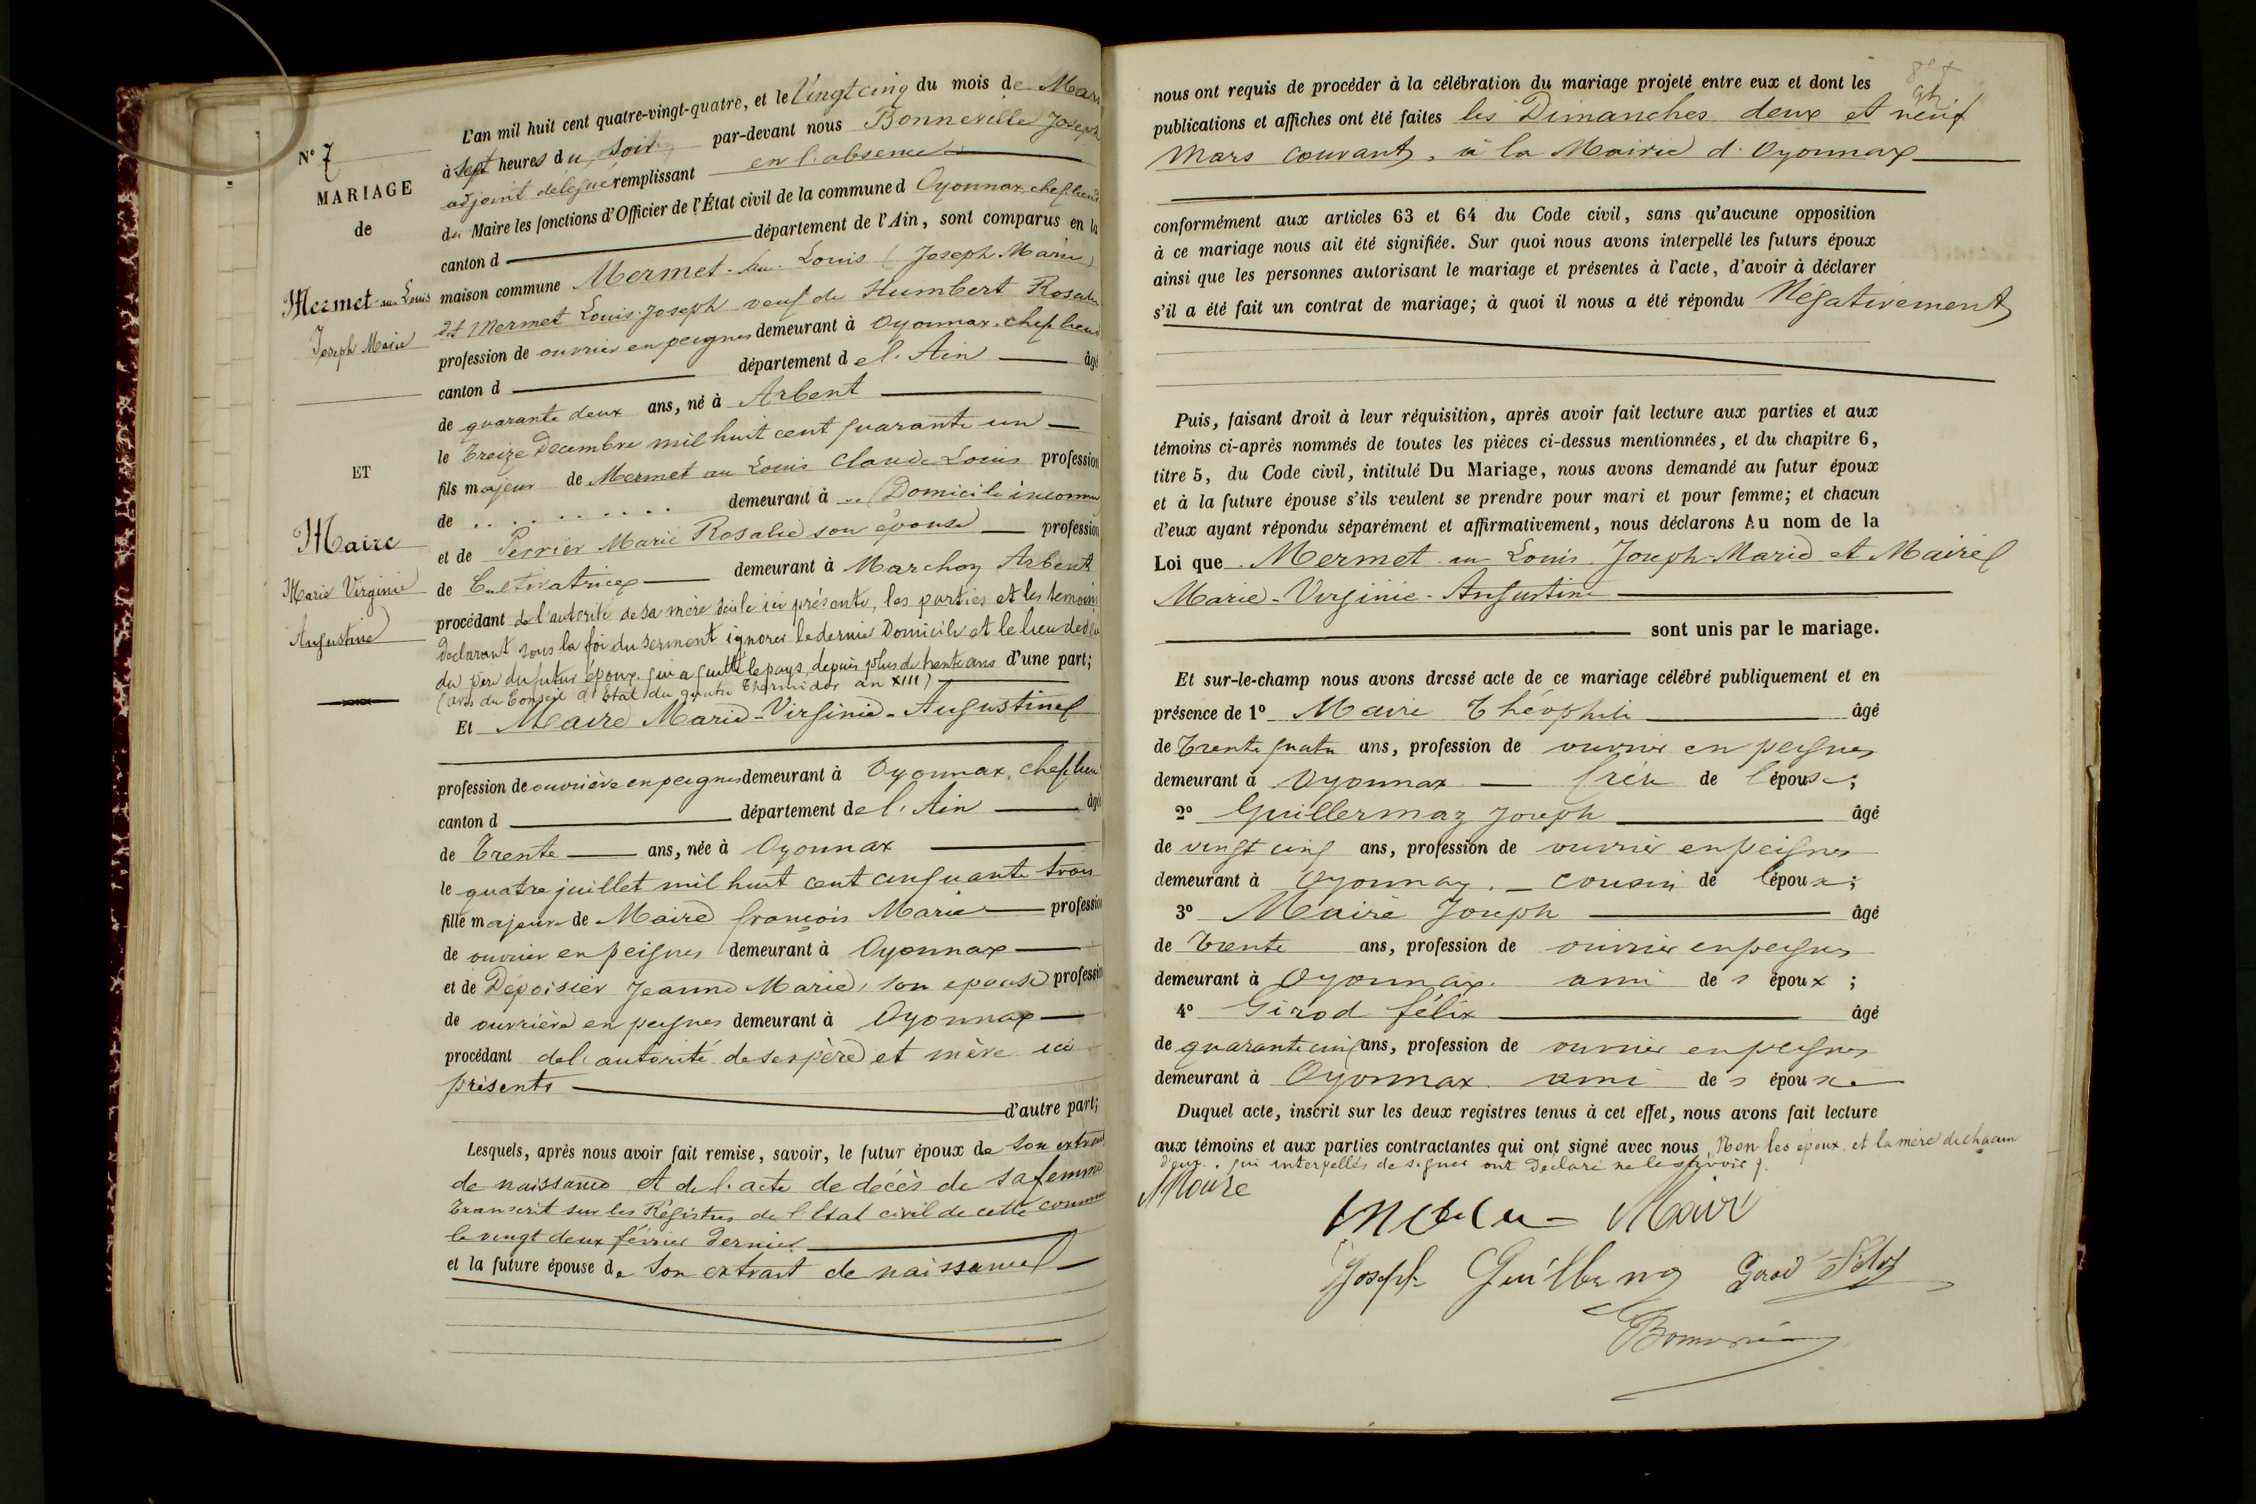 N° 7
MARIAGE
de
Mermet-au-Louis
Joseph Marie
ET
Maire
Marie Virginie
Augustine
L'an mil huit cent quatre-vingt-quatre, et le Vingt cinq du mois de Mars
à sept heures du soir par-devant nous Bonneville Joseph
adjoint délégué remplissant en l'absence
du Maire les fonctions d'Officier de l'État civil de la commune d Oyonnax, chef lieu
canton d département de l'Ain, sont comparus en la
maison commune Mermet-au-Louis (Joseph Marie)
dit Mermet Louis Joseph veuf de Humbert Rosalie
profession de ouvrier en peignes demeurant à Oyonnax, chef lieu
canton d département de l'Ain âgé
de quarante deux ans, né à Arbent
le treize Décembre mil huit cent quarante un
fils majeur de Mermet au Louis Claude Louis profession
de demeurant à .. (Domicile inconnu
et de Perrier Marie Rosalie son épouse profession
de Cultivatrice demeurant à Marchon Arbent
procédant de l'autorité de sa mère seule ici présente, les parties et les témoins
déclarant sous la foi du serment ignorer le dernier Domicile et le lieu de décès
du père du futur époux qui a quitté le pays depuis plus de trente ans d'une part;
(avis du Conseil d'Etat du quatre Thermidor an XIII)
Et Maire Marie-Virginie-Augustine
profession de ouvrière en peignes demeurant à Oyonnax, chef lieu
canton d département de l'Ain âgé
de Trente ans, née à Oyonnax
le quatre juillet mil huit cent cinquante trois
fille majeure de Maire françois Marie profession
de ouvrier en peignes demeurant à Oyonnax
et de Dépoisier Jeanne Marie, son épouse profession
de ouvrière en peignes demeurant à Oyonnax
procédant de l'autorité de ses père et mère ici
présents
d'autre part;
Lesquels, après nous avoir fait remise, savoir, le futur époux de son extrait
de naissance et de l'acte de décès de sa femme
transcrit sur les Régistres de l'Etat civil de cette commune
le vingt deux février dernier
et la future épouse de son extrait de naissance
nous ont requis de procéder à la célébration du mariage projeté entre eux et dont les
publications et affiches ont été faites les Dimanches deux et neuf
Mars courant, à la Mairie d'Oyonnax
conformément aux articles 63 et 64 du Code civil, sans qu'aucune opposition
à ce mariage nous ait été signifiée. Sur quoi nous avons interpellé les futurs époux
ainsi que les personnes autorisant le mariage et présentes à l'acte, d'avoir à déclarer
s'il a été fait un contrat de mariage; à quoi il nous a été répondu Négativement
Puis, faisant droit à leur réquisition, après avoir fait lecture aux parties et aux
témoins ci-après nommés de toutes les pièces ci-dessus mentionnées, et du chapitre 6,
titre 5, du Code civil, intitulé Du Mariage, nous avons demandé au futur époux
et à la future épouse s'ils veulent se prendre pour mari et pour femme; et chacun
d'eux ayant répondu séparément et affirmativement, nous déclarons Au nom de la
Loi que Mermet au Louis Joseph-Marie et Maire
Marie-Virginie-Augustine
sont unis par le mariage.
Et sur-le-champ nous avons dressé acte de ce mariage célébré publiquement et en
présence de 1° Maire Théophile âgé
de Trente quatre ans, profession de ouvrier en peignes
demeurant à Oyonnax frère de l'épouse;
2° Guillermoz Joseph âgé
de vingt cinq ans, profession de ouvrier en peignes
demeurant à Oyonnax. cousin de l'époux;
3° Maire Joseph âgé
de Trente ans, profession de ouvrier en peignes
demeurant à Oyonnax. ami des époux;
4° Girod félix âgé
de quarante cinq ans, profession de ouvrier en peignes
demeurant à Oyonnax. ami des époux
Duquel acte, inscrit sur les deux registres tenus à cet effet, nous avons fait lecture
aux témoins et aux parties contractantes qui ont signé avec nous, Non les époux et la mère de chacun
d'eux, qui interpellés de signer ont déclaré ne le savoir).
Maire
Maire
Joseph Guillermoz Girod